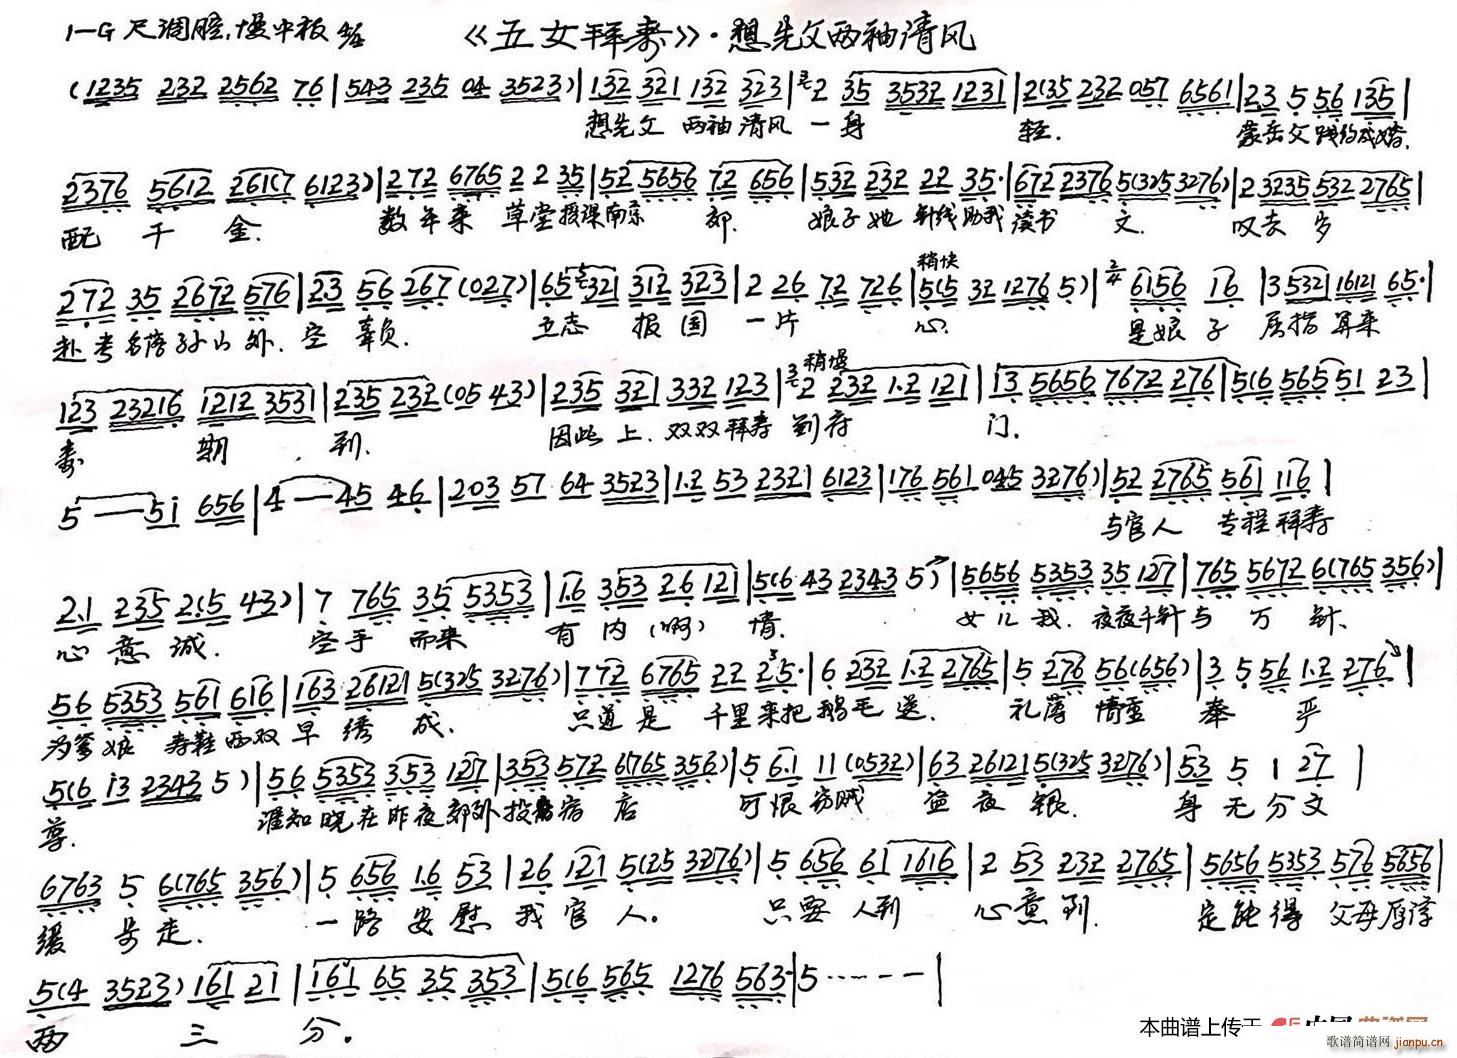 1=G 尺调腔.慢中板 《五女拜寿》·想先父两袖清风
(1235 232 2562 76|543 235 04 3523)|132 321 132 323|2 35 3532 1231|2(35 232 057 6561|23 5 56 135|
想先父 两袖清风 一身 轻. 蒙岳父践约成婚.
2376 5612 261(7 6123)|272 6765 2 2 35|52 5656 72 656|532 232 22 35·|672 2376 5(325 3276)|2 3235 532 2765|
配 千 金. 数年来 草堂授课南京 郊. 娘子她 针线助我读书 文. 叹去岁
272 35 2672 576|23 56 267(027)|65 321 312 323|2 26 72 726|稍快 5(5 32 1276 5)|2/4 6156 16|3532 16121 65·|
赴考名落孙山外.空 辜负. 立志 报国 一片 心. 是娘子 屈指算来
123 23216 1212 3531|235 232(05 43)|235 321 332 123|稍慢 2 232 1·2 121|13 5656 7672 276|5(6 565 51 23|
寿 期 到. 因此上.双双拜寿到府 门.
5——5i 656|4——45 46|203 57 64 3523|1·2 53 2321 6123|176 561 045 3276)|52 2765 561 116|
与官人 专程拜寿
2·1 235 2(5 43)|7 765 35 5353|1·6 353 26 121|5(6 43 2343 5)|5656 5353 35 127|765 5672 6(765 356)|
心意诚. 空手 而来 有内(啊)情. 女儿我.夜夜千针与 万 针.
56 5353 561 616|163 26121 5(325 3276)|772 6765 22 25·|6 232 1·2 2765|5 276 56(656)|3 5 56 1·2 276|
为爹娘 寿鞋两双早 绣 成. 只道是 千里来把鹅毛送. 礼薄 情重 奉 严
5(6 i3 2343 5)|56 5353 353 127|353 572 6(765 356)|5 6·1 11(0532)|63 26121 5(325 3276)|53 5 1 27|
尊. 谁知晓在昨夜郊外投宿 店 可恨窃贼 盗 夜 银. 身无分文
6763 5 6(765 356)|5 656 1·6 53|26 121 5(25 3276)|5 656 61 1616|2 53 232 2765|5656 5353 576 5656|
缓 步 走. 一路安慰 我官 人. 只要 人到 心意到. 定能得 父母厚谆
5(4 3523)161 21|161 65 35 353|5(6 565 1276 563·|5······—|
两 三 分.
本曲谱上传于
歌谱简谱网 jianpu.cn